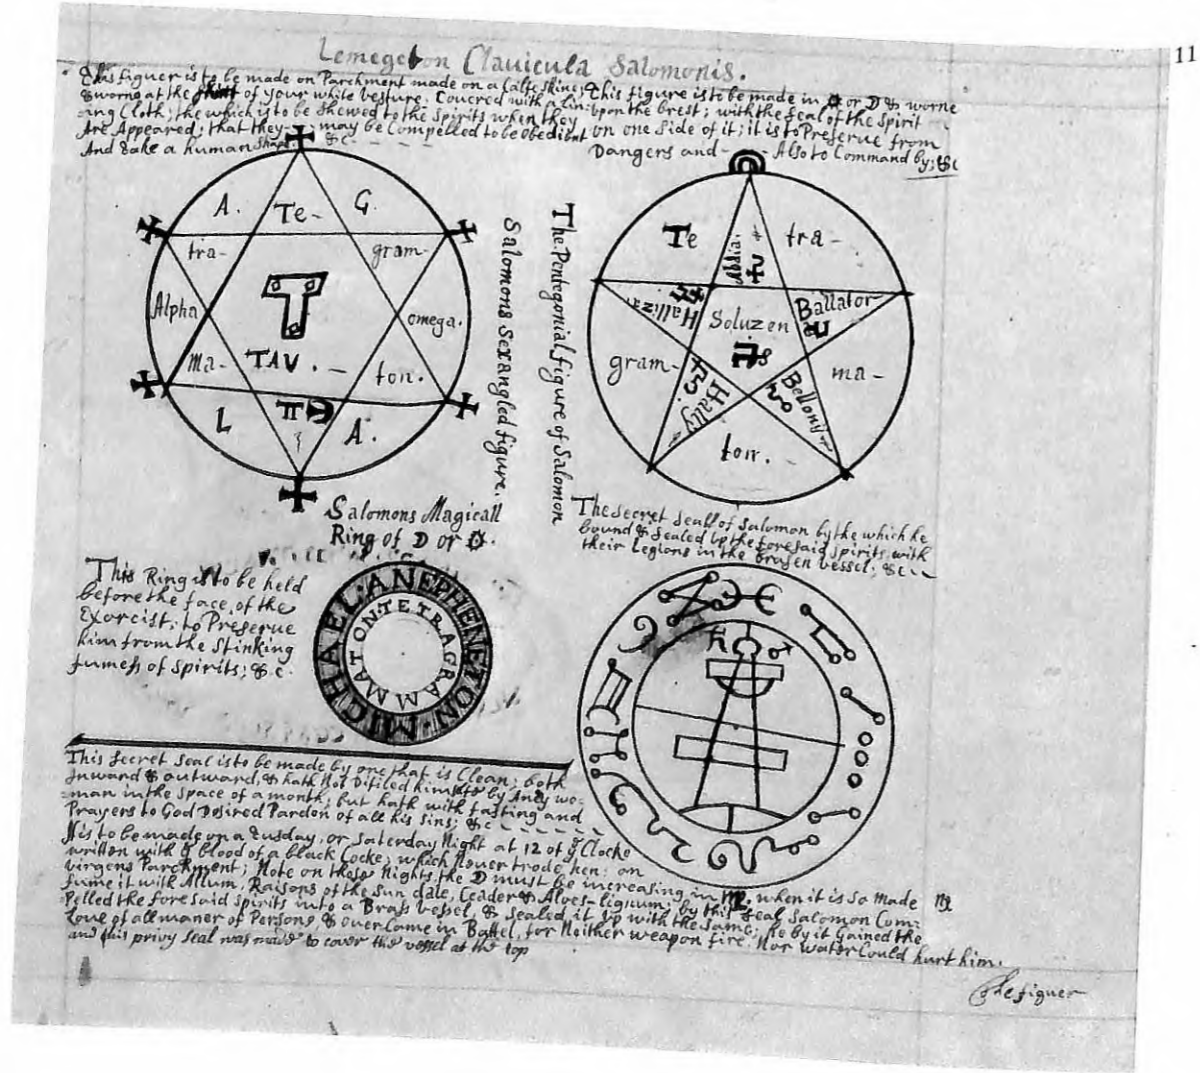 11
Lemegeton Clavicula Salomonis.
This figuer is to be made on Parchment made on a Calfe skine;
& worne at the skirt of your white vesture. Couered with a Lin-
ing Cloth; the which is to be shewed to the Spirits when they
Are Appeared; that they may be Compelled to be obedient
And take a human shape. &c
This figure is to be made in ☼ or ☽ & worne
upon the brest; with the seal of the Spirit
on one side of it; it is to Preserve from
Dangers and - Also to Command by; &c
A.
Te-
G.
tra-
gram-
Alpha
T
omega.
ma-
TAV.
ton.
L
A.
Salomons Sexangled figure.
The Pentegonial figure of Salomon
Te
Abdia
tra-
Halliza
Soluzen
Ballator
gram-
Hally
Bellony
ma-
ton.
Salomons Magicall
Ring of ☽ or ☼.
This Ring is to be held
before the face of the
Exorcist; to Preserve
him from the Stinking
fumes of Spirits; &c.
MICHAEL·ANEPHENETON·
TETRAGRAMMATON·
The secret seall of Salomon by the which he
bound & sealed up the foresaid spirits with
their Legions in the brasen vessel; &c
♄
♂
This secret seal is to be made by one that is Clean; both
Inward & outward, & hath Not Difiled himself by Any wo-
man in the space of a month; but hath with fasting and
Prayers to God Desired Pardon of all his sins; &c
It is to be made on a Tusday, or Saterday Night at 12 of ye Clocke
written with ye blood of a black Cocke; which Never trode hen: on
virgens Parchment; Note on those Nights the ☽ must be increasing in ♍. when it is so made ♍
fume it with Allum, Raisons of the Sun, date, Ceader & Aloes-lignum; by this seal Salomon Com-
Pelled the foresaid spirits into a Brass vessel, & sealed it up with the same; he by it Gained the
Love of all maner of Persons & overcame in Battel, for Neither weapon fire, Nor water Could hurt him.
and this privy seal was made to cover the vessel at the top
The figuer